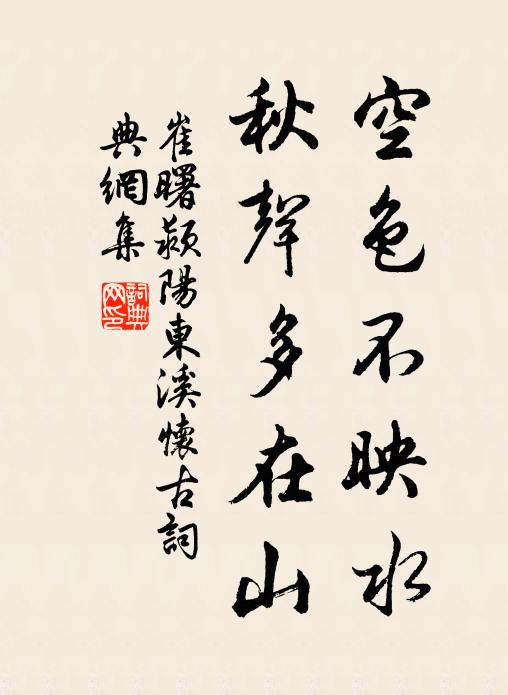 空色不映水
秋聲多在山
崔曙潁陽東溪懷古詞
典網集
詞典
网印